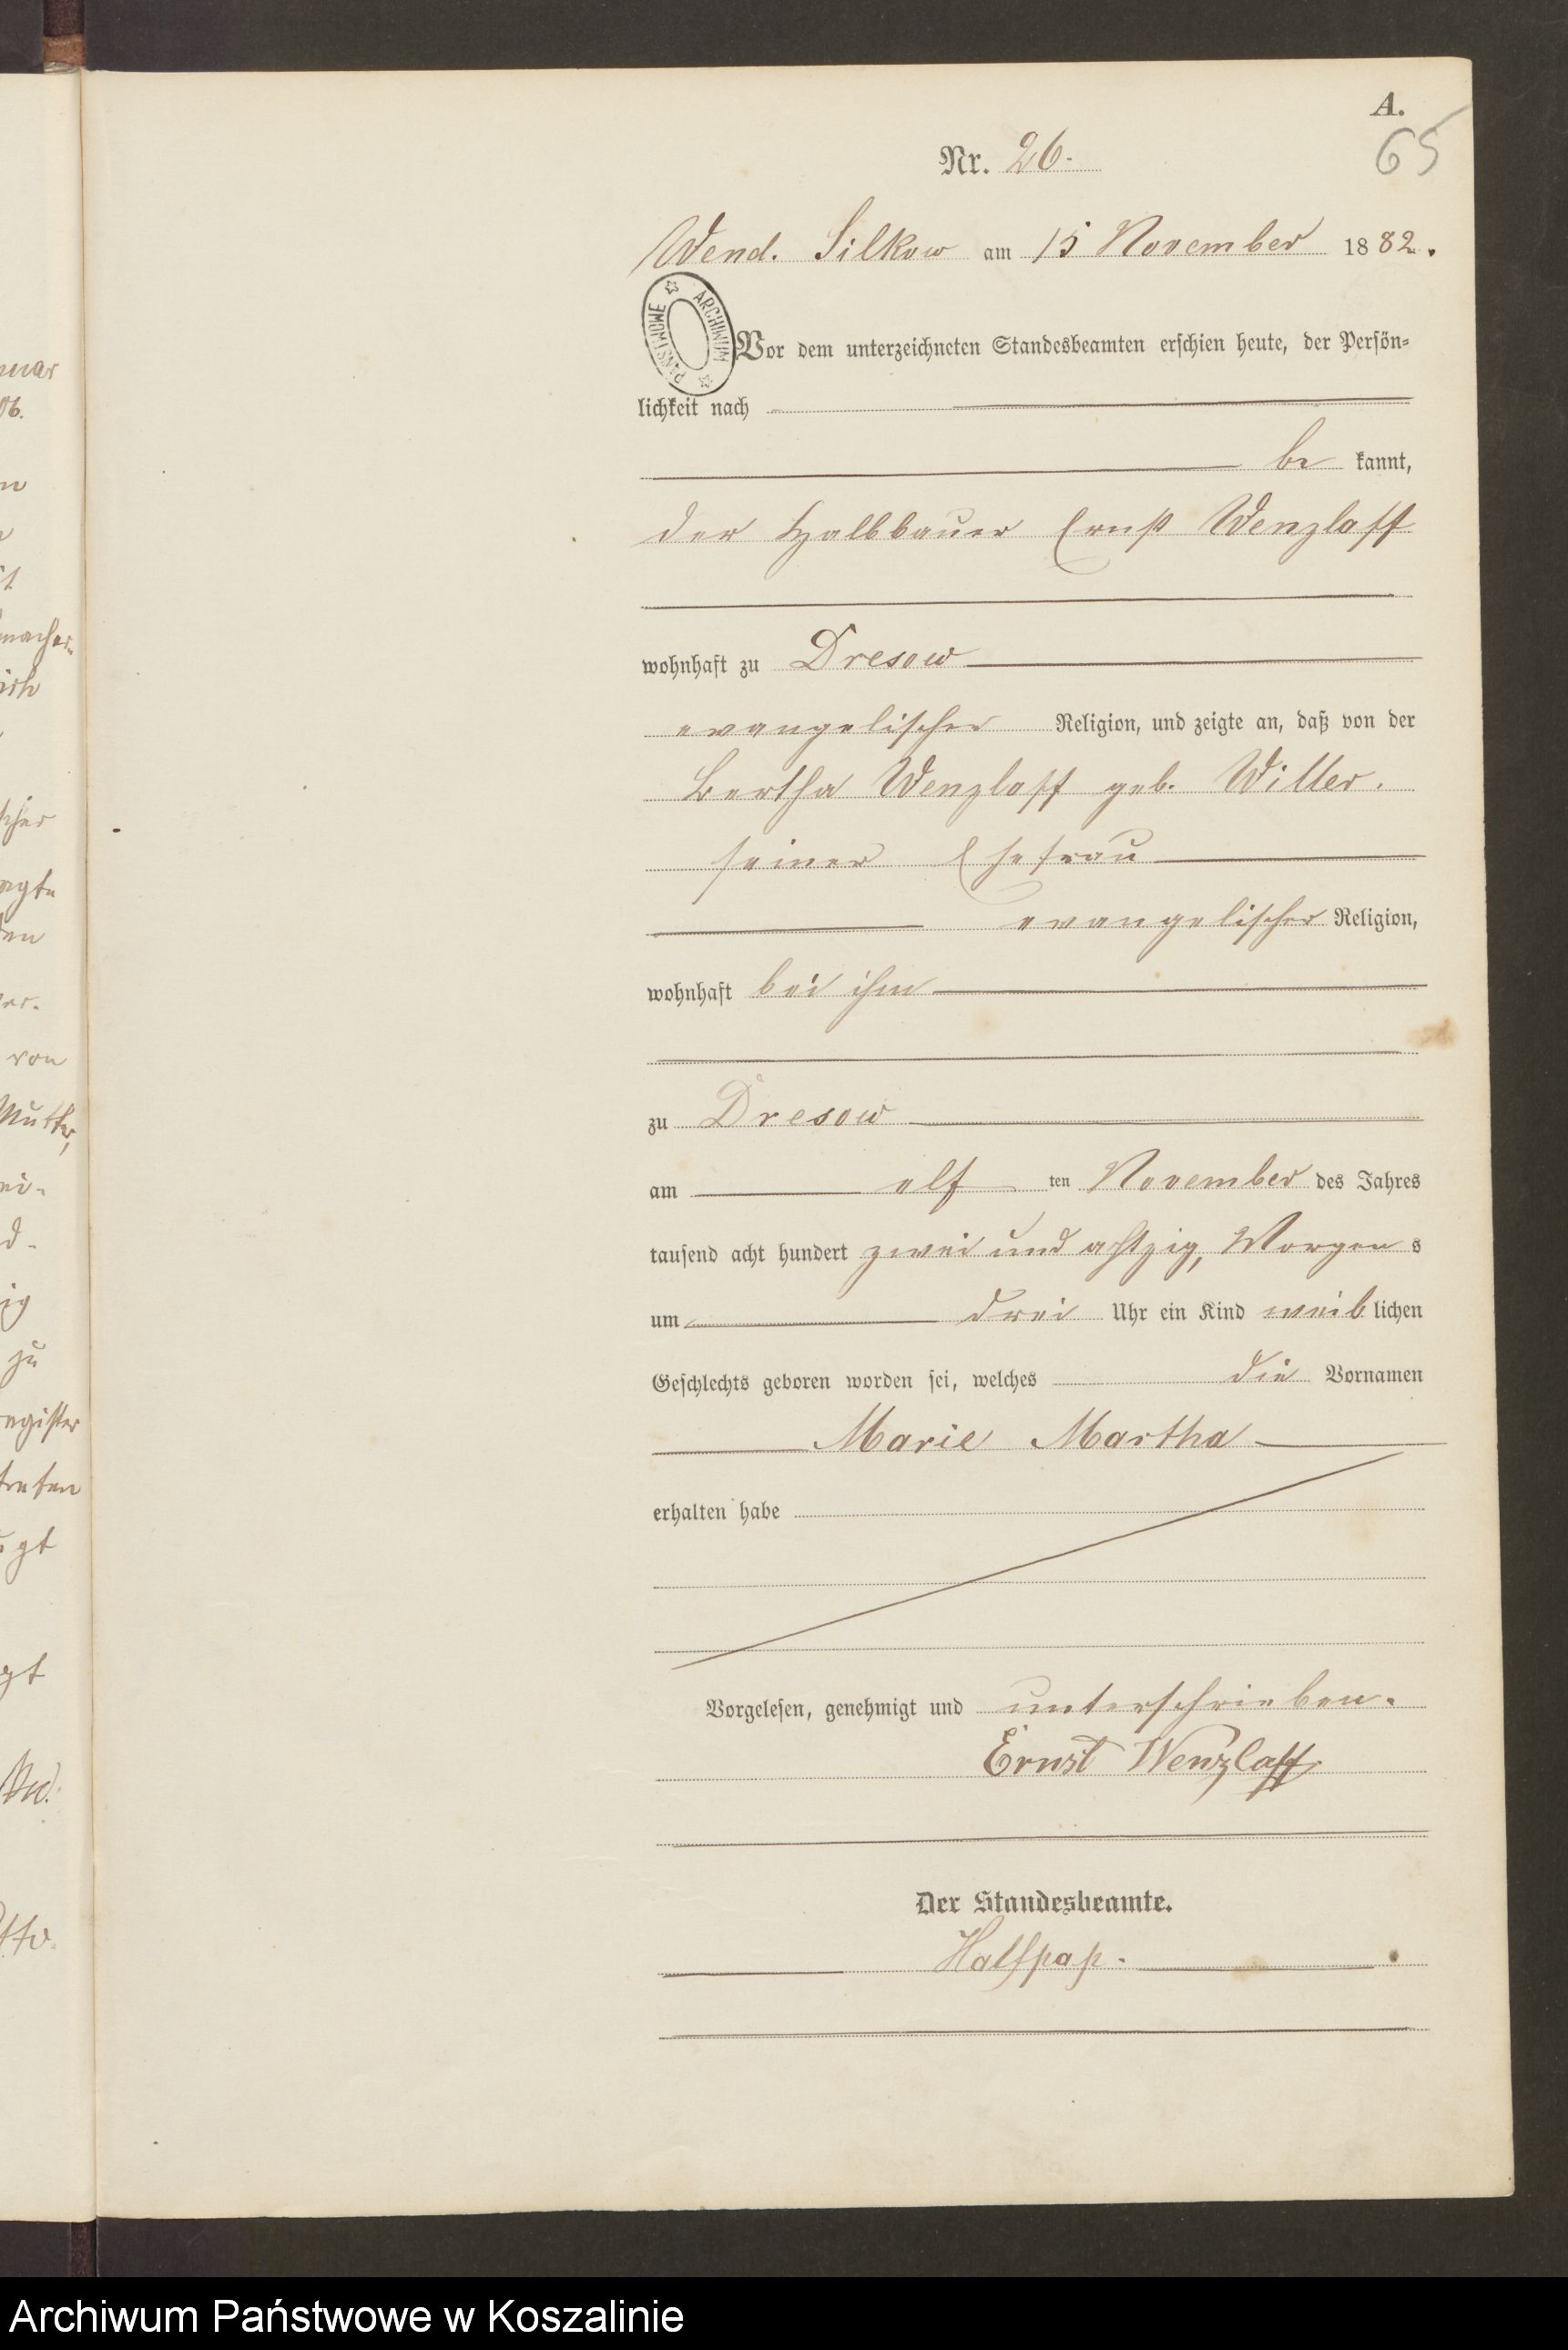 A.
65
Nr. 26.
Wend. Silkow am 15 November 1882.
ARCHIWUM PAŃSTWOWE
Vor dem unterzeichneten Standesbeamten erschien heute, der Persön=
lichkeit nach
be kannt,
der Halbbauer Ernst Wenzlaff
wohnhaft zu Dresow
evangelischer Religion, und zeigte an, daß von der
Bertha Wenzlaff geb. Witter.
seiner Ehefrau
evangelischer Religion,
wohnhaft bei ihm
zu Dresow
am elf ten November des Jahres
tausend acht hundert zwei und achtzig, Morgen s
um drei Uhr ein Kind weib lichen
Geschlechts geboren worden sei, welches die Vornamen
Marie Martha
erhalten habe
Vorgelesen, genehmigt und unterschrieben.
Ernst Wenzlaff
Der Standesbeamte.
Halfpap.
nuar
06.
macher
von
Mutter,
ei-
d-
ig
zu
register
treten
gt
gt
Archiwum Państwowe w Koszalinie